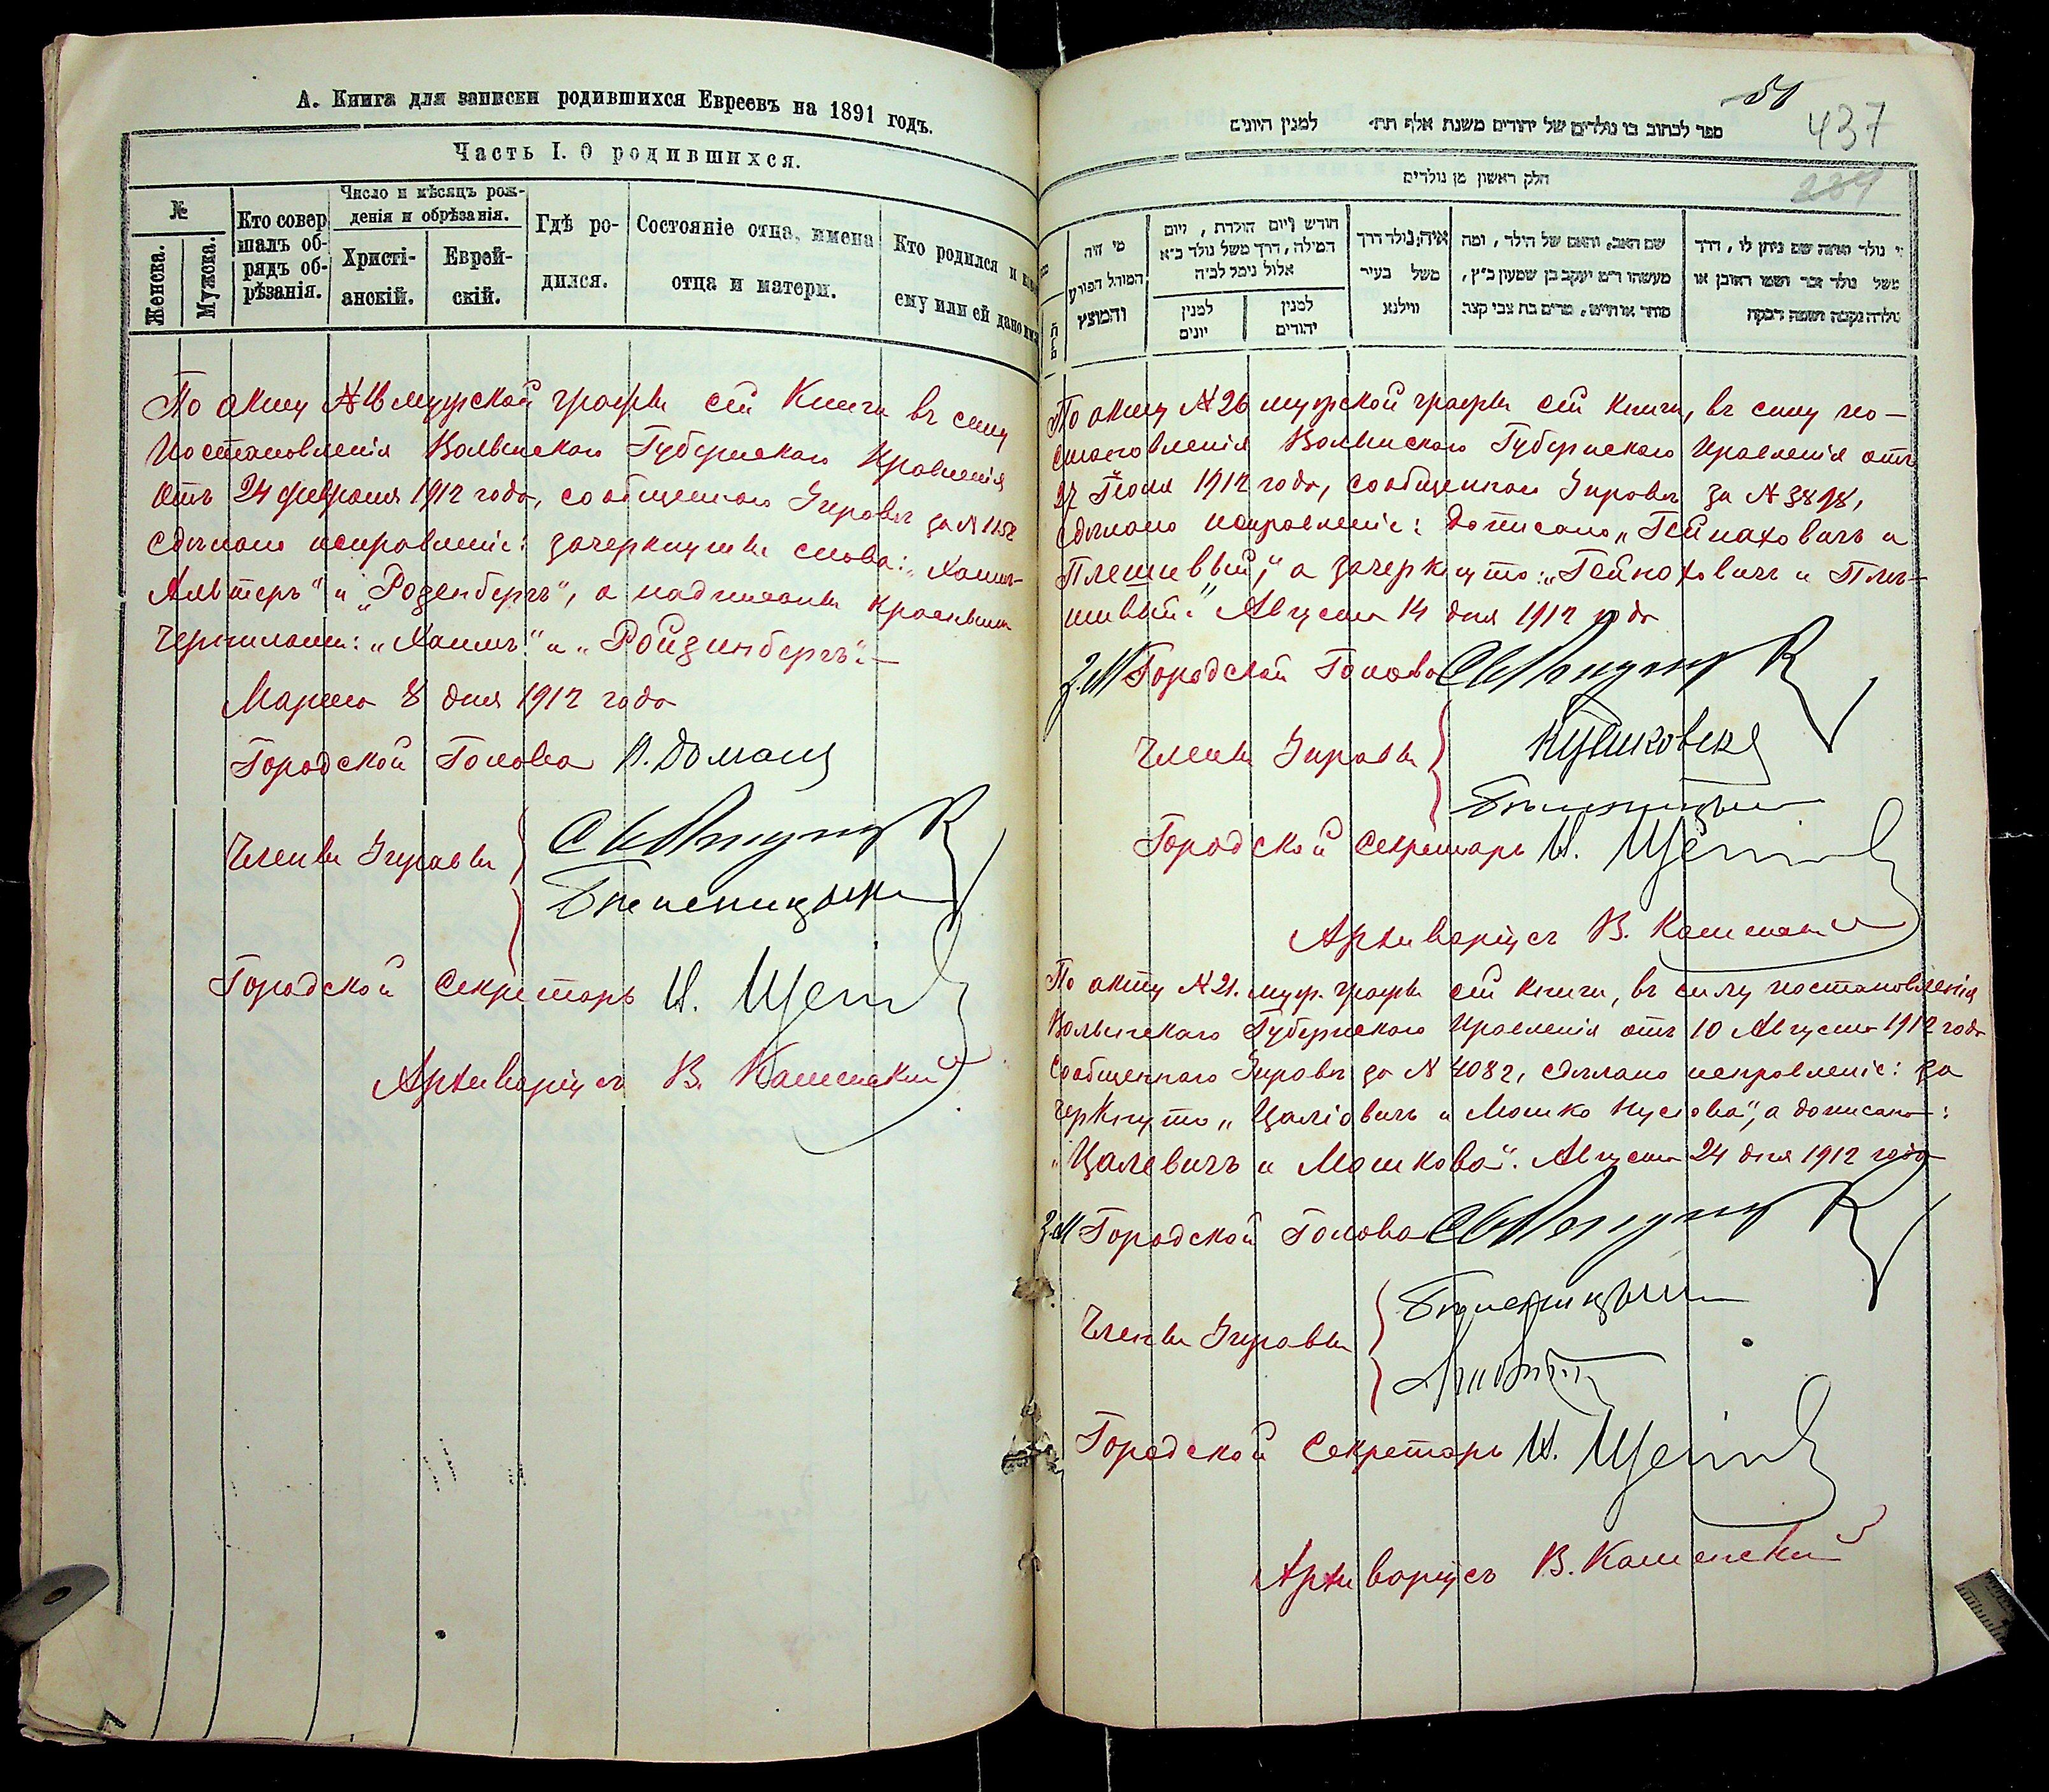 А. Книга для записки родившихся Евреевъ на 1891 годъ.
Часть I. О родившихся.
№
Женска.
Мужска.
Кто совер
шалъ об-
рядъ об-
рѣзанія.
Число и мѣсяцъ рож-
денія и обрѣзанія.
Христі-
анскій.
Еврей-
скій.
Гдѣ ро-
дился.
Состояніе отца, имена
отца и матери.
Кто родился и
ему или ей дано
По акту № мужской графы сей Книги въ силу
Постановленія Волынскаго Губернскаго Правленія
отъ 24 февраля 1912 года, сообщеннаго Управѣ за №
сдѣлано исправленіе: зачеркнуты слова: „Хаимъ-
Альтеръ" и „Розенбергъ", а надписаны красными
чернилами: „Хаимъ" и „Ройзинбергъ".—
Марта 8 дня 1912 года
Городской Голова
Члены Управы
Городской Секретарь
Архиваріусъ В. Каменскій
51
437
ספר לכתוב בו נולדים של יהודים משנת אלף תר׳ למנין היונים
239
חלק ראשון מן נולדים
מי היה
המוהל הפורע
והמוצץ
חודש ויום הולדת, ויום
המילה, דרך משל נולד כ״א
אלול נימל לכ״ח
למנין
יונים
למנין
יהודים
איה נולד דרך
משל בעיר
ווילנא
שם האב, והאם של הילד, ומה
מעשהו ר״מ יעקב בן שמעון כ״ץ,
סוחר או חייט, מרים בת צבי קצב
נולד ואיזה שם ניתן לו, דרך
משל נולד זכר ושמו ראובן או
נולדה נקבה ושמה רבקה
По акту № 26 мужской графы сей книги, въ силу по-
становленія Волынскаго Губернскаго Правленія отъ
27 Іюля 1912 года, сообщеннаго Управѣ за № 3898,
сдѣлано исправленіе: дописано „Гейнаховичъ и
Плешивый," а зачеркнуто: „Гейноховичъ и Плѣ-
шивый." Августа 14 дня 1912 года
З.М. Городской Голова
Члены Управы
Городской Секретарь
Архиваріусъ В. Каменскій
По акту № 21. муж. графы сей книги, въ силу постановленія
Волынскаго Губернскаго Правленія отъ 10 Августа 1912 года
сообщеннаго Управѣ за № 4082, сдѣлано исправленіе: за
черкнуто „Цаліовичъ и Мошко Нусова", а дописано:
„Цалевичъ и Мошкова". Августа 24 дня 1912 года
З.М. Городской Голова
Члены Управы
Городской Секретарь
Архиваріусъ В. Каменскій